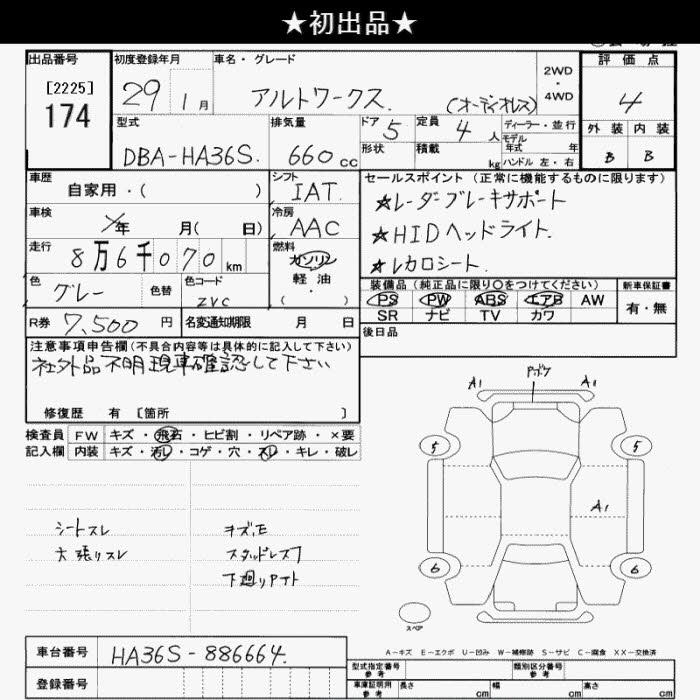 ★初出品★
出品番号 初度登録年月 車名・グレード 評価点
[2225] 174 29 1月 アルトワークス (オーディオレス) 2WD・4WD 4
型式 排気量 ドア 5 定員 4人 ディーラー・並行 外装 内装
DBA-HA36S. 660cc 形状 積載 kg モデル年式 年 ハンドル 左・右 B B
車歴 シフト セールスポイント (正常に機能するものに限ります)
自家用・( ) IAT. ★レーダーブレーキサポート
車検 年 月( 日) 冷房 AAC ★HIDヘッドライト.
走行 8万6千070km 燃料 ガソリン 軽油・( ) ★レカロシート.
色 グレー 色替 色コード ZVC 装備品 (純正品に限り○をつけてください) 新車保証書
PS PW ABS エアB AW 有・無
SR ナビ TV カワ
R券 7,500円 名変通知期限 月 日 後日品
注意事項申告欄 (不具合内容等は具体的に記入して下さい)
社外品不明現車確認して下さい
修復歴 有 [箇所 ]
検査員 FW キズ・飛石・ヒビ割・リペア跡・×要
記入欄 内装 キズ・汚レ・コゲ・穴・スレ・キレ・破レ
A1 A1
5 5
A1
6 6
シートスレ キズ,E
天張リスレ スタッドレス7
下廻リ
スペア
A-キズ E-エクボ U-凹み W-補修跡 S-サビ C-腐食 XX-交換済
車台番号 HA36S-886664.
型式指定番号 参考 類別区分番号 参考
登録番号 車庫証明用 参考 長さ cm 幅 cm 高さ cm